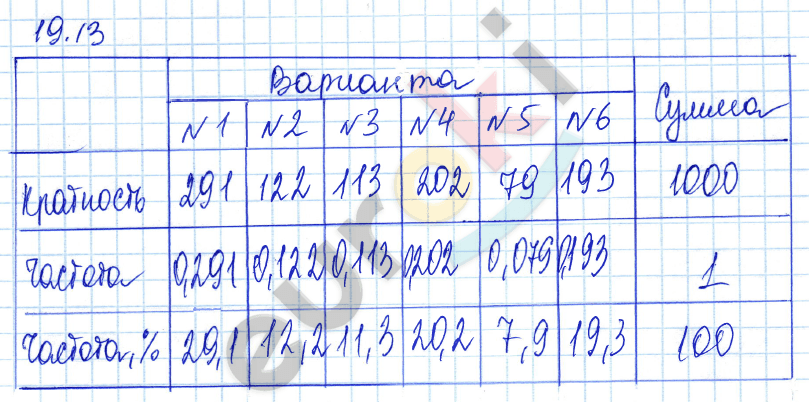 19.13
Варианта
N1 N2 N3 N4 N5 N6 Сумма
Кратность 291 122 113 202 79 193 1000
Частота 0,291 0,122 0,113 0,202 0,079 0,193 1
Частота, % 29,1 12,2 11,3 20,2 7,9 19,3 100
euroki